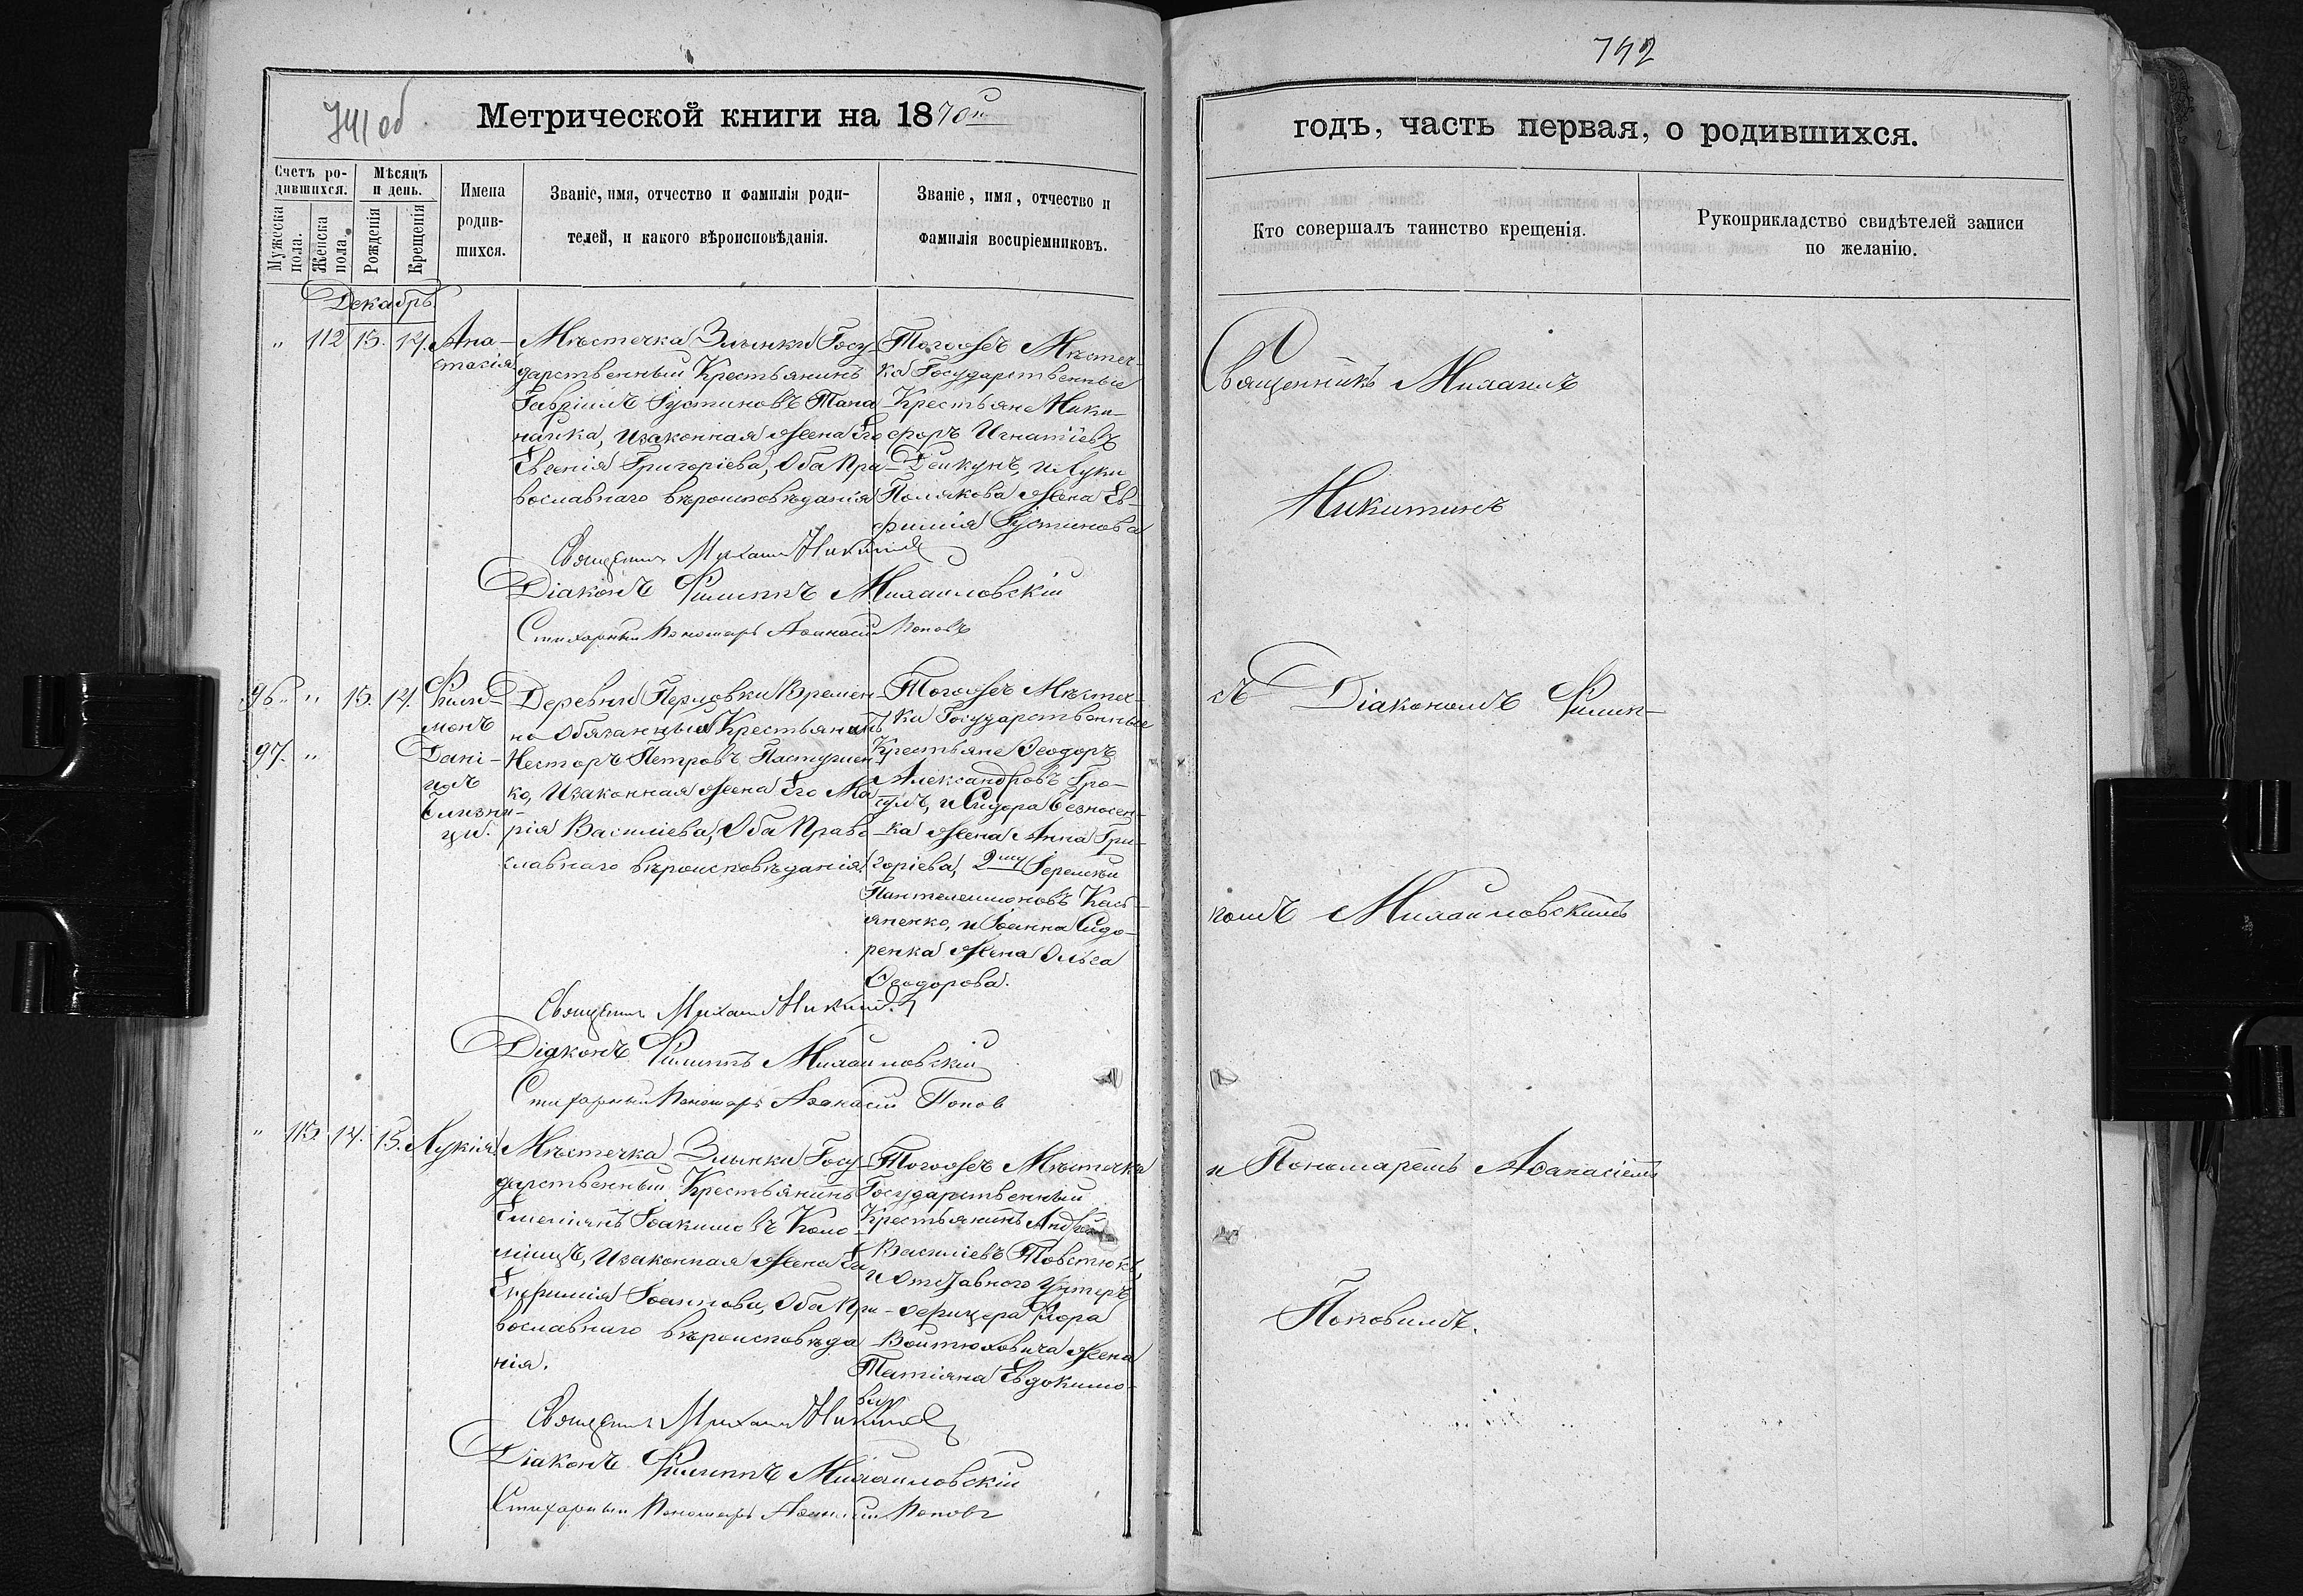 741 об
Метрической книги на 1870й
Счетъ ро-
дившихся.
Мужеска пола.
Женска пола.
Мѣсяцъ
и день.
Рожденія
Крещенія
Имена
родив-
шихся.
Званіе, имя, отчество и фамилія роди-
телей, и какого вѣроисповѣданія.
Званіе, имя, отчество и
фамилія воспріемниковъ.
Декабрь
" 112 13. 14. Ана-
стасія
Мѣстечка Злынки Госу-
дарственный Крестьянинъ
Гавріилъ Іустиновъ Тана-
найка, и законная жена Его
Евгенія Григоріева, Оба Пра-
вославнаго вѣроисповѣданія
Тогоже Мѣстеч-
ка Государственные
Крестьяне Ники-
форъ Игнатіевъ
Дейкунъ, и Луки
Полякова жена Ев-
фимія Іустинова
Священникъ Михаилъ Никитинъ
Діаконъ Филиппъ Михайловскій
Стихарный Пономарь Аѳанасій Поповъ
96. " 13. 14. Фили-
монъ
97. " Дані-
илъ
близне-
цы.
Деревни Перловки Времен-
но обязанный Крестьянинъ
Несторъ Петровъ Пастушен-
ко, и законная жена Его Ма-
рія Василіева, Оба Право-
славнаго вѣроисповѣданія.
Тогоже Мѣстеч-
ки Государственные
Крестьяне Ѳеодоръ
Александровъ Гро-
гулъ, и Сидора Безносен-
ка жена Анна Гри-
горіева, 2му Іеремѣи
Пантелеимоновъ Кась-
яненко, и Іоанна Сидо-
ренка жена Ольга
Ѳеодорова.
Священникъ Михаилъ Никитинъ
Діаконъ Филиппъ Михайловскій
Стихарный Пономарь Аѳанасій Попов
" 113. 14. 15. Лукія.
Мѣстечка Злынки Госу-
дарственный Крестьянинъ
Емеліянъ Іоакимовъ Коло-
міицъ, и законная жена Его
Евфимія Іоаннова, Оба Пра-
вославнаго вѣроисповѣда-
нія.
Тогоже Мѣстечка
Государственный
Крестьянинъ Андрей
Василіевъ Товстюкъ,
и Отставного Унтеръ-
офицера Флора
Войтюховича жена
Татіяна Евдокимо-
ва
Священникъ Михаилъ Никитинъ
Діаконъ Филиппъ Михайловскій
Стихарный Пономарь Аѳанасій Поповъ
742
годъ, часть первая, о родившихся.
Кто совершалъ таинство крещенія.
Рукоприкладство свидѣтелей записи
по желанію.
Священникъ Михаилъ
Никитинъ
съ Діакономъ Филип-
помъ Михайловскимъ
и Пономаремъ Аѳанасіемъ
Поповимъ.